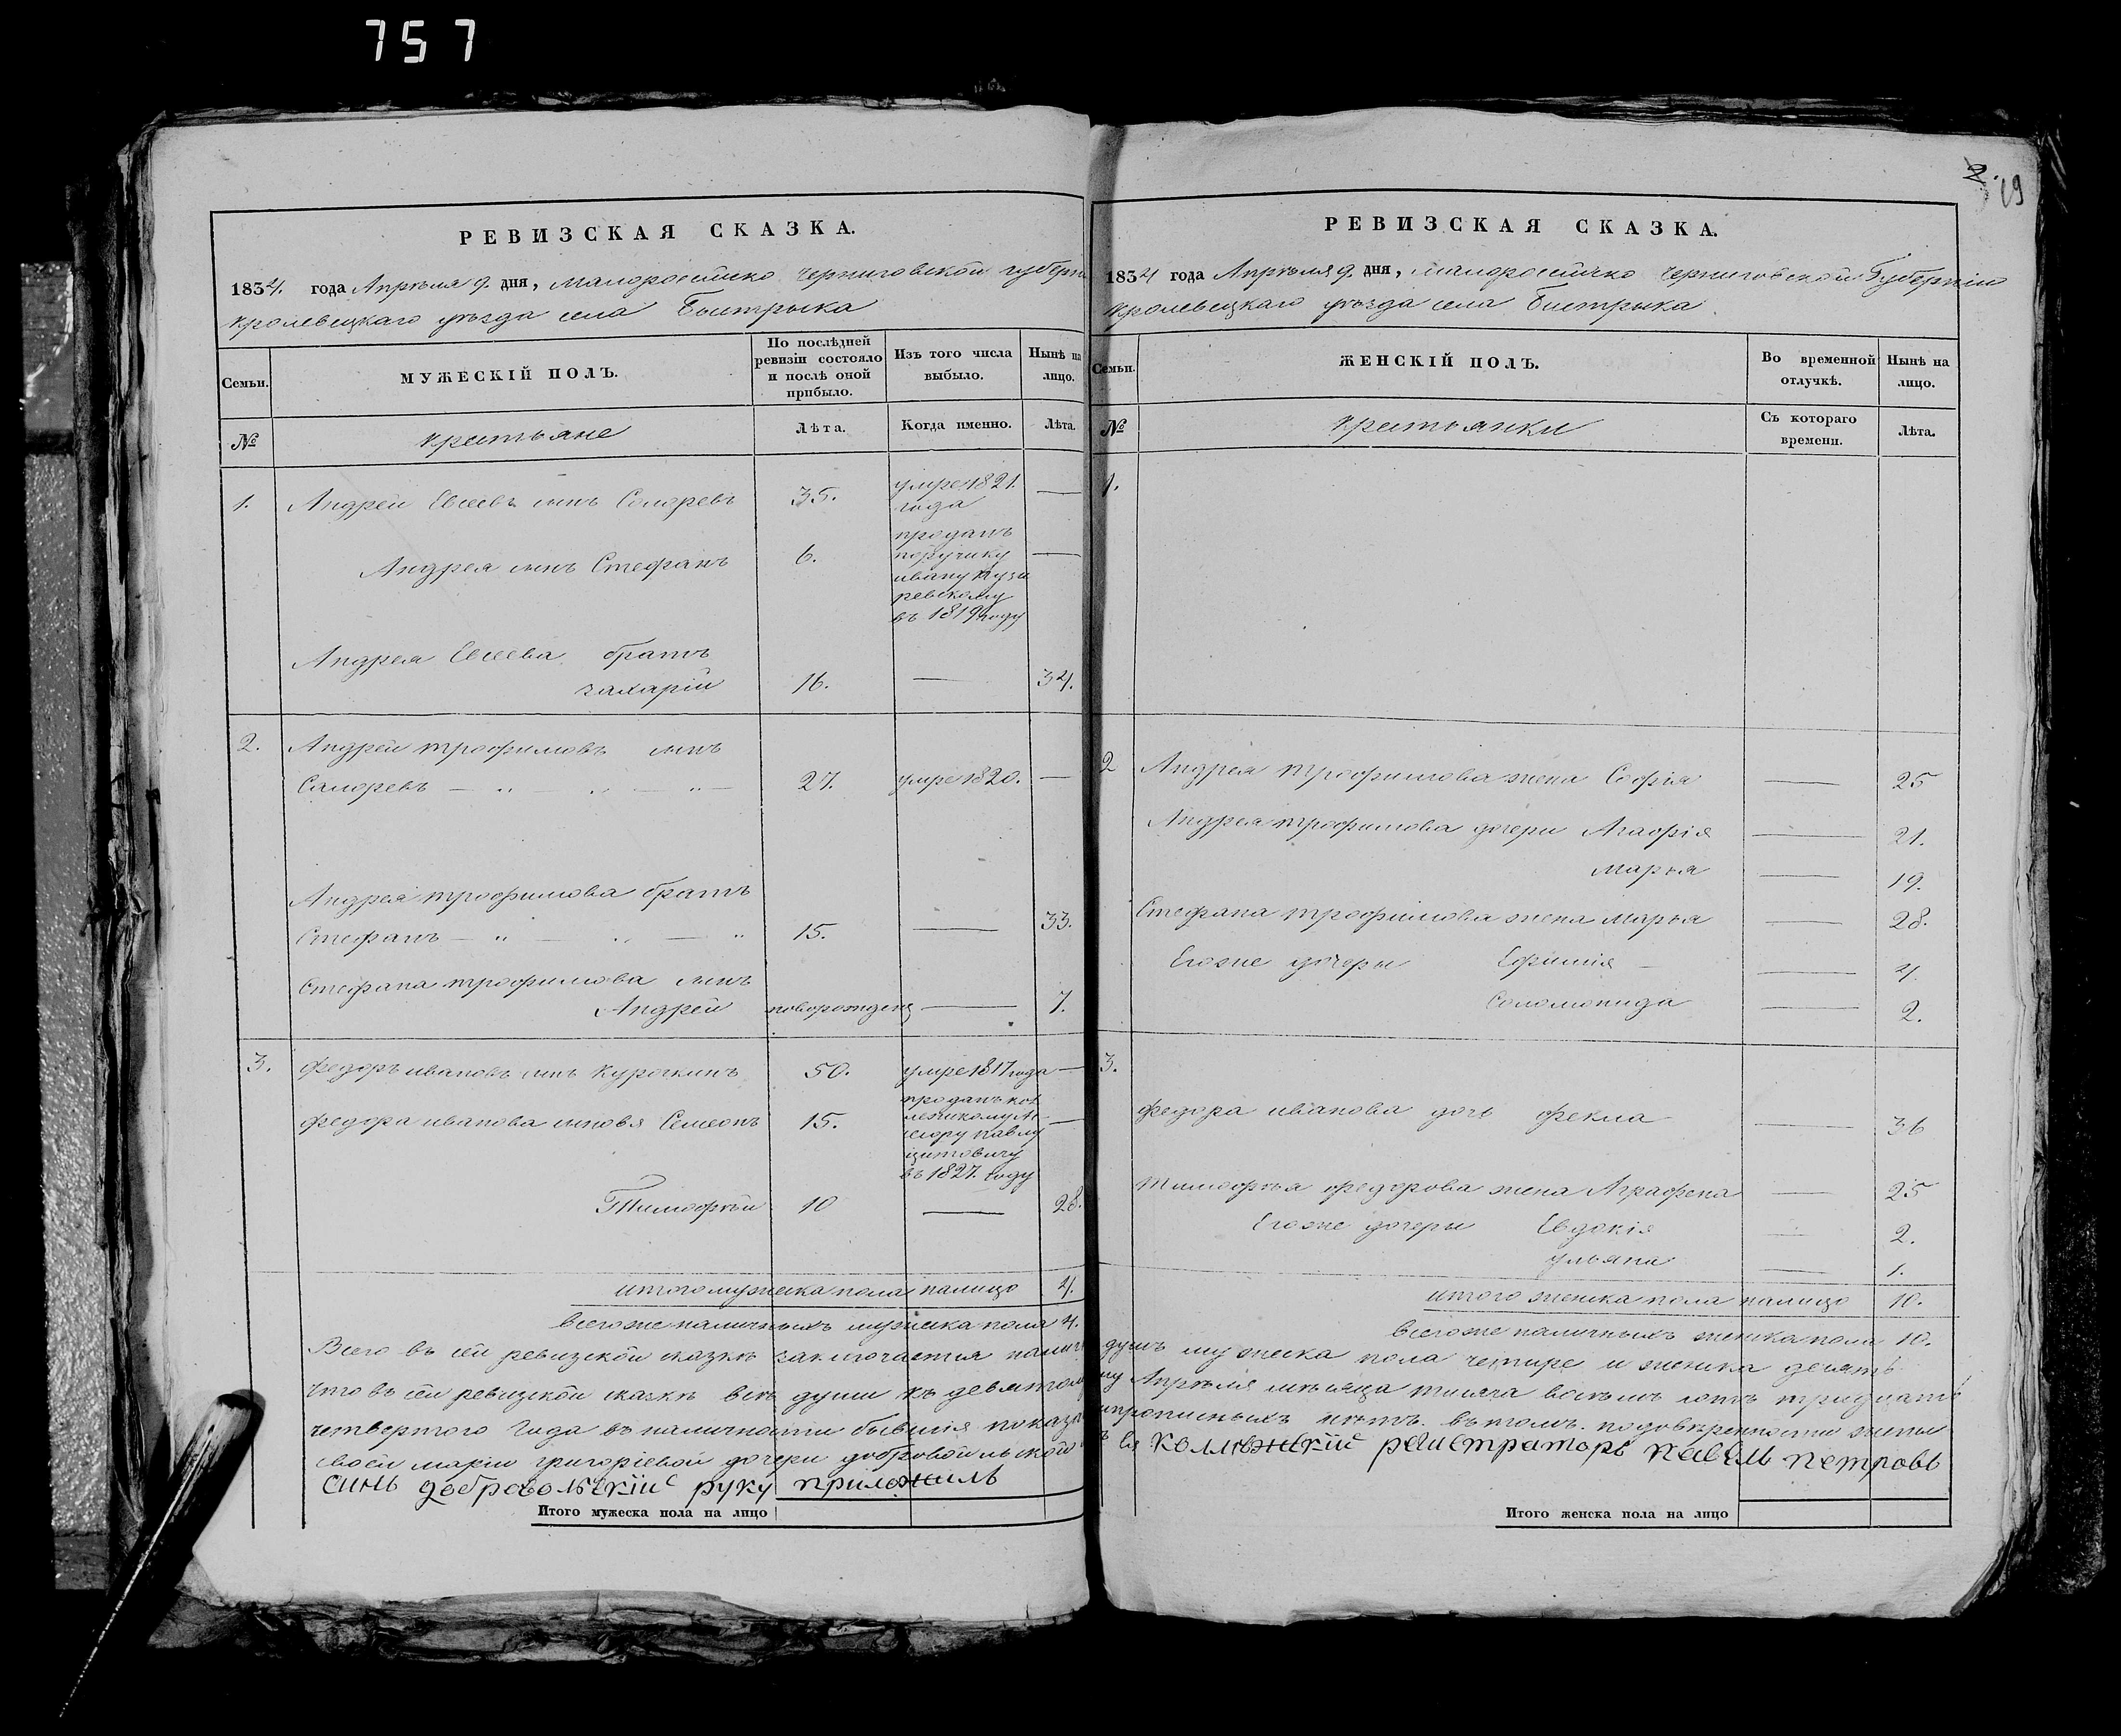 757
2.
19
РЕВИЗСКАЯ СКАЗКА.
1834. года Апрѣля 9. дня, малоросійско Черниговской губерн
кролевецкаго уѣзда села Бистрыка
Семьи.
МУЖЕСКІЙ ПОЛЪ.
По послѣдней ревизіи состояло и послѣ оной прибыло.
Изъ того числа выбыло.
Нынѣ на лицо.
№
крестьяне
Лѣта.
Когда именно.
Лѣта.
1. Андрей Евсеевъ синъ 35. умре 1821. —
года
Андрея синъ Стефанъ 6. проданъ —
поручику
ивану
ревскому
въ 1819 году
Андрея Евсеева братъ
захарій 16. — 34.
2. Андрей трофимовъ синъ
27. умре 1820. —
Андрея трофимова братъ
Стефанъ — „ — „ — „ 15. — 33.
Стефана трофимова синъ
Андрей новорожденъ — 7.
3. федоръ ивановъ синъ Курочкинъ 50. умре 1817 года —
федора иванова синовя Семеонъ 15. проданъ —
въ 1827. году
Тимофѣй 10 — 28.
итого мужеска пола налицо 4.
всегоже наличныхъ мужеска пола 4.
Всего въ сей ревизской сказкѣ заключается налич
что въ сей ревизской сказкѣ всѣ души къ девятом
четвертого Года въ наличности бывшія показа
своей маріи григоріевой дочери добровольской
синъ доброволскій руку приложилъ
Итого мужеска пола на лицо
РЕВИЗСКАЯ СКАЗКА.
1834 года Апрѣля 9. дня, малоросійско Черниговской Губерніи
кролевецкаго уѣзда села Бистрыка.
Семьи.
ЖЕНСКІЙ ПОЛЪ.
Во временной отлучкѣ.
Нынѣ на лицо.
№
крестьянки
Съ котораго времени.
Лѣта.
1.
2 Андрея трофимова жена Софія — 25
Андрея трофимова дочери Агафія — 21.
Марья — 19.
Стефана трофимова жена марья — 28.
Егоже дочери Ефимія — 4.
Соломонида — 2.
3.
федора иванова дочь фекла — 36
тимофѣя федорова жена Аграфена — 25
Егоже дочери Евдокія — 2.
ульяна — 1.
итого женска пола налицо 10.
всегоже наличныхъ женска пола 10.
душъ мужеска пола четире и женска десять
му Апрѣля мѣсяца тисяча восемъ сотъ тридцать
ипрописныхъ нѣтъ. въ томъ. подовѣренности жены
коллежскій регистраторъ павелъ петровъ
Итого женска пола на лицо